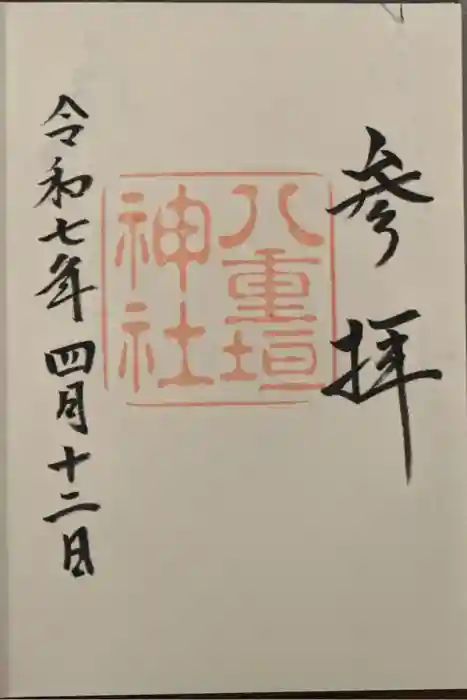 参拝
八重垣
神社
令和七年四月十二日